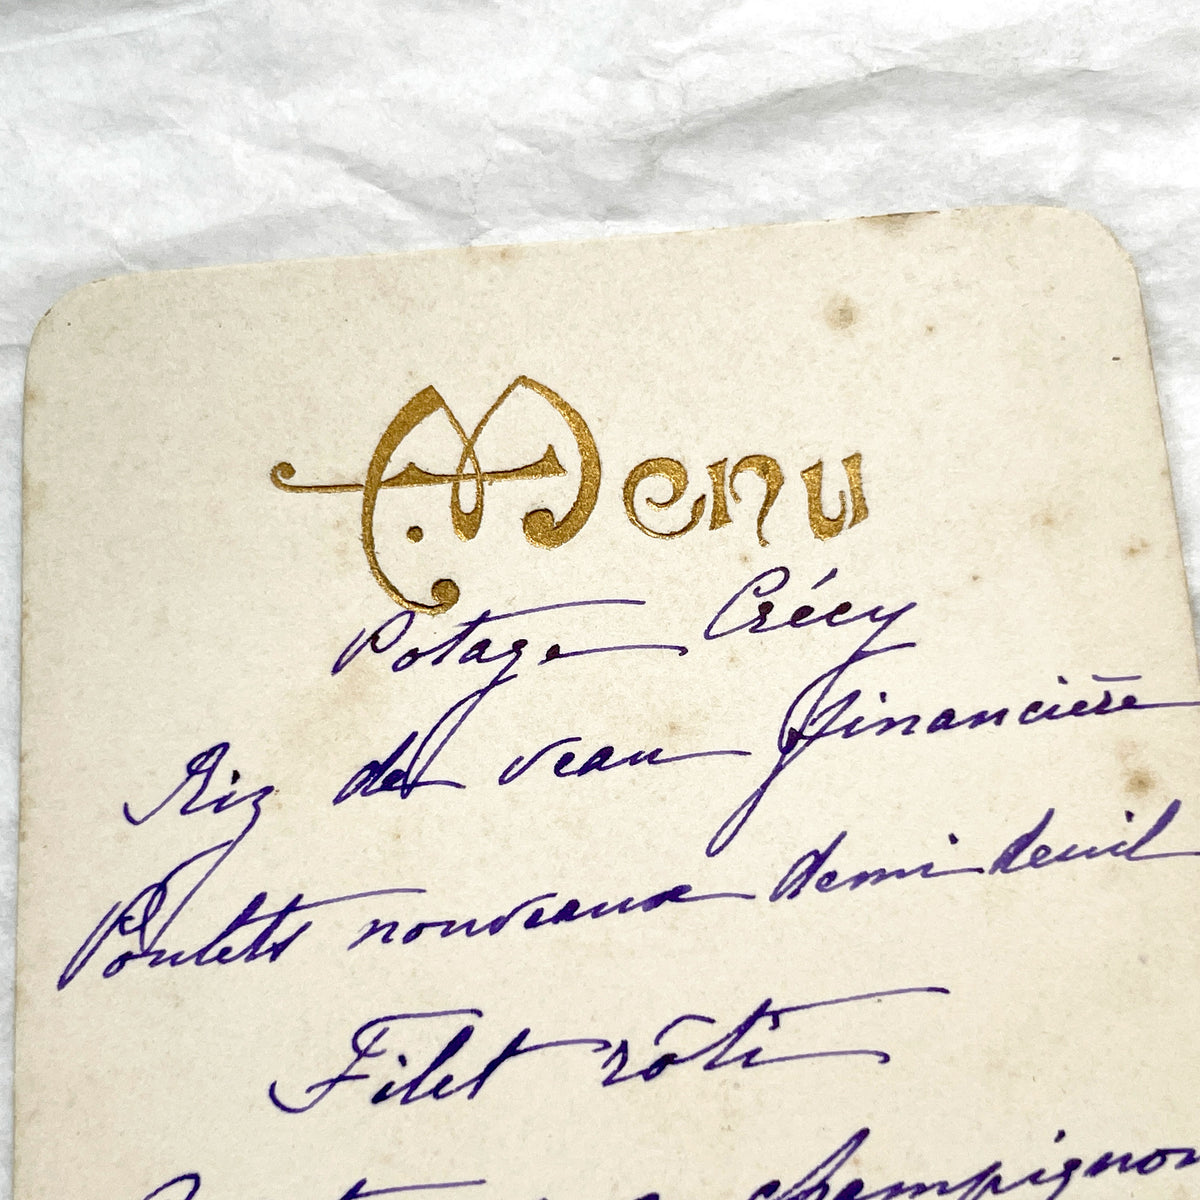 Menu
Potage Crécy
Riz de veau financière
Poulets nouveaux demi deuil
Filet rôti
champignon